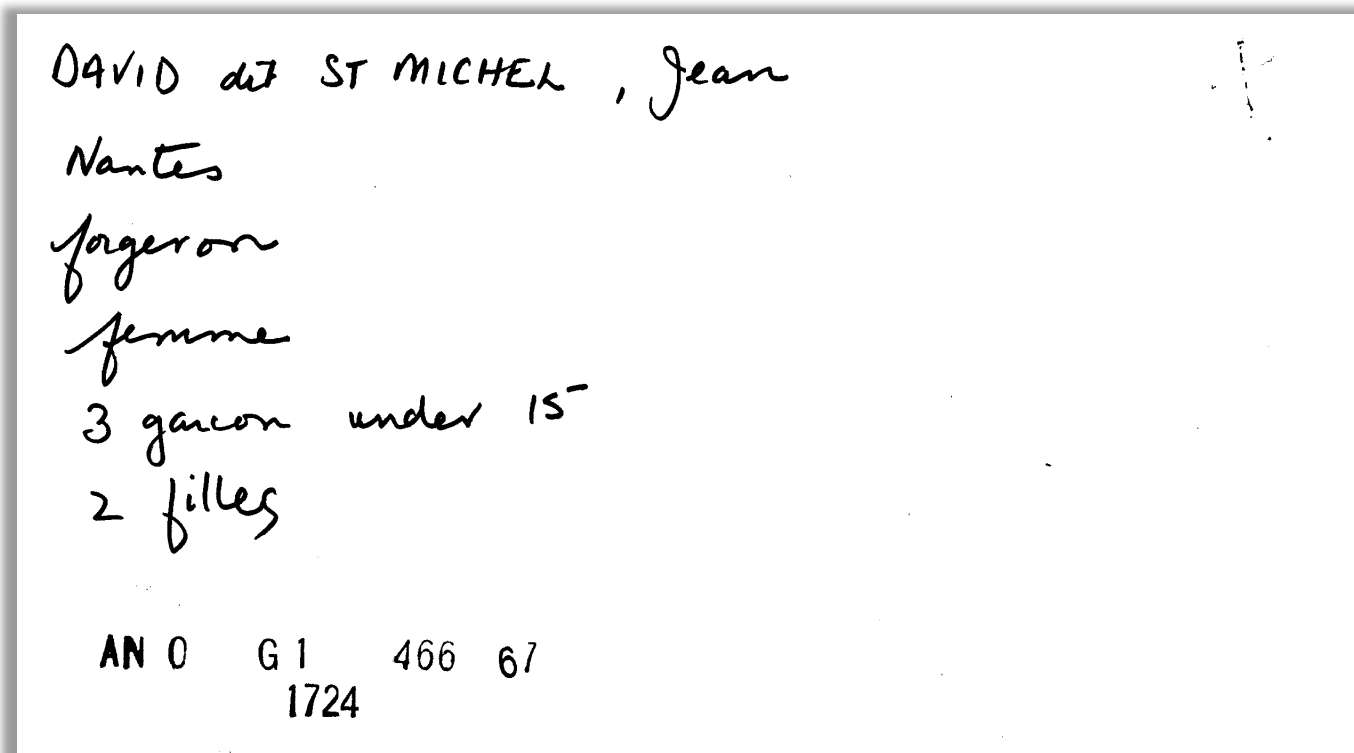 DAVID dit ST MICHEL, Jean
Nantes
forgeron
femme
3 garcon under 15
2 filles
AN O G 1 466 67
1724